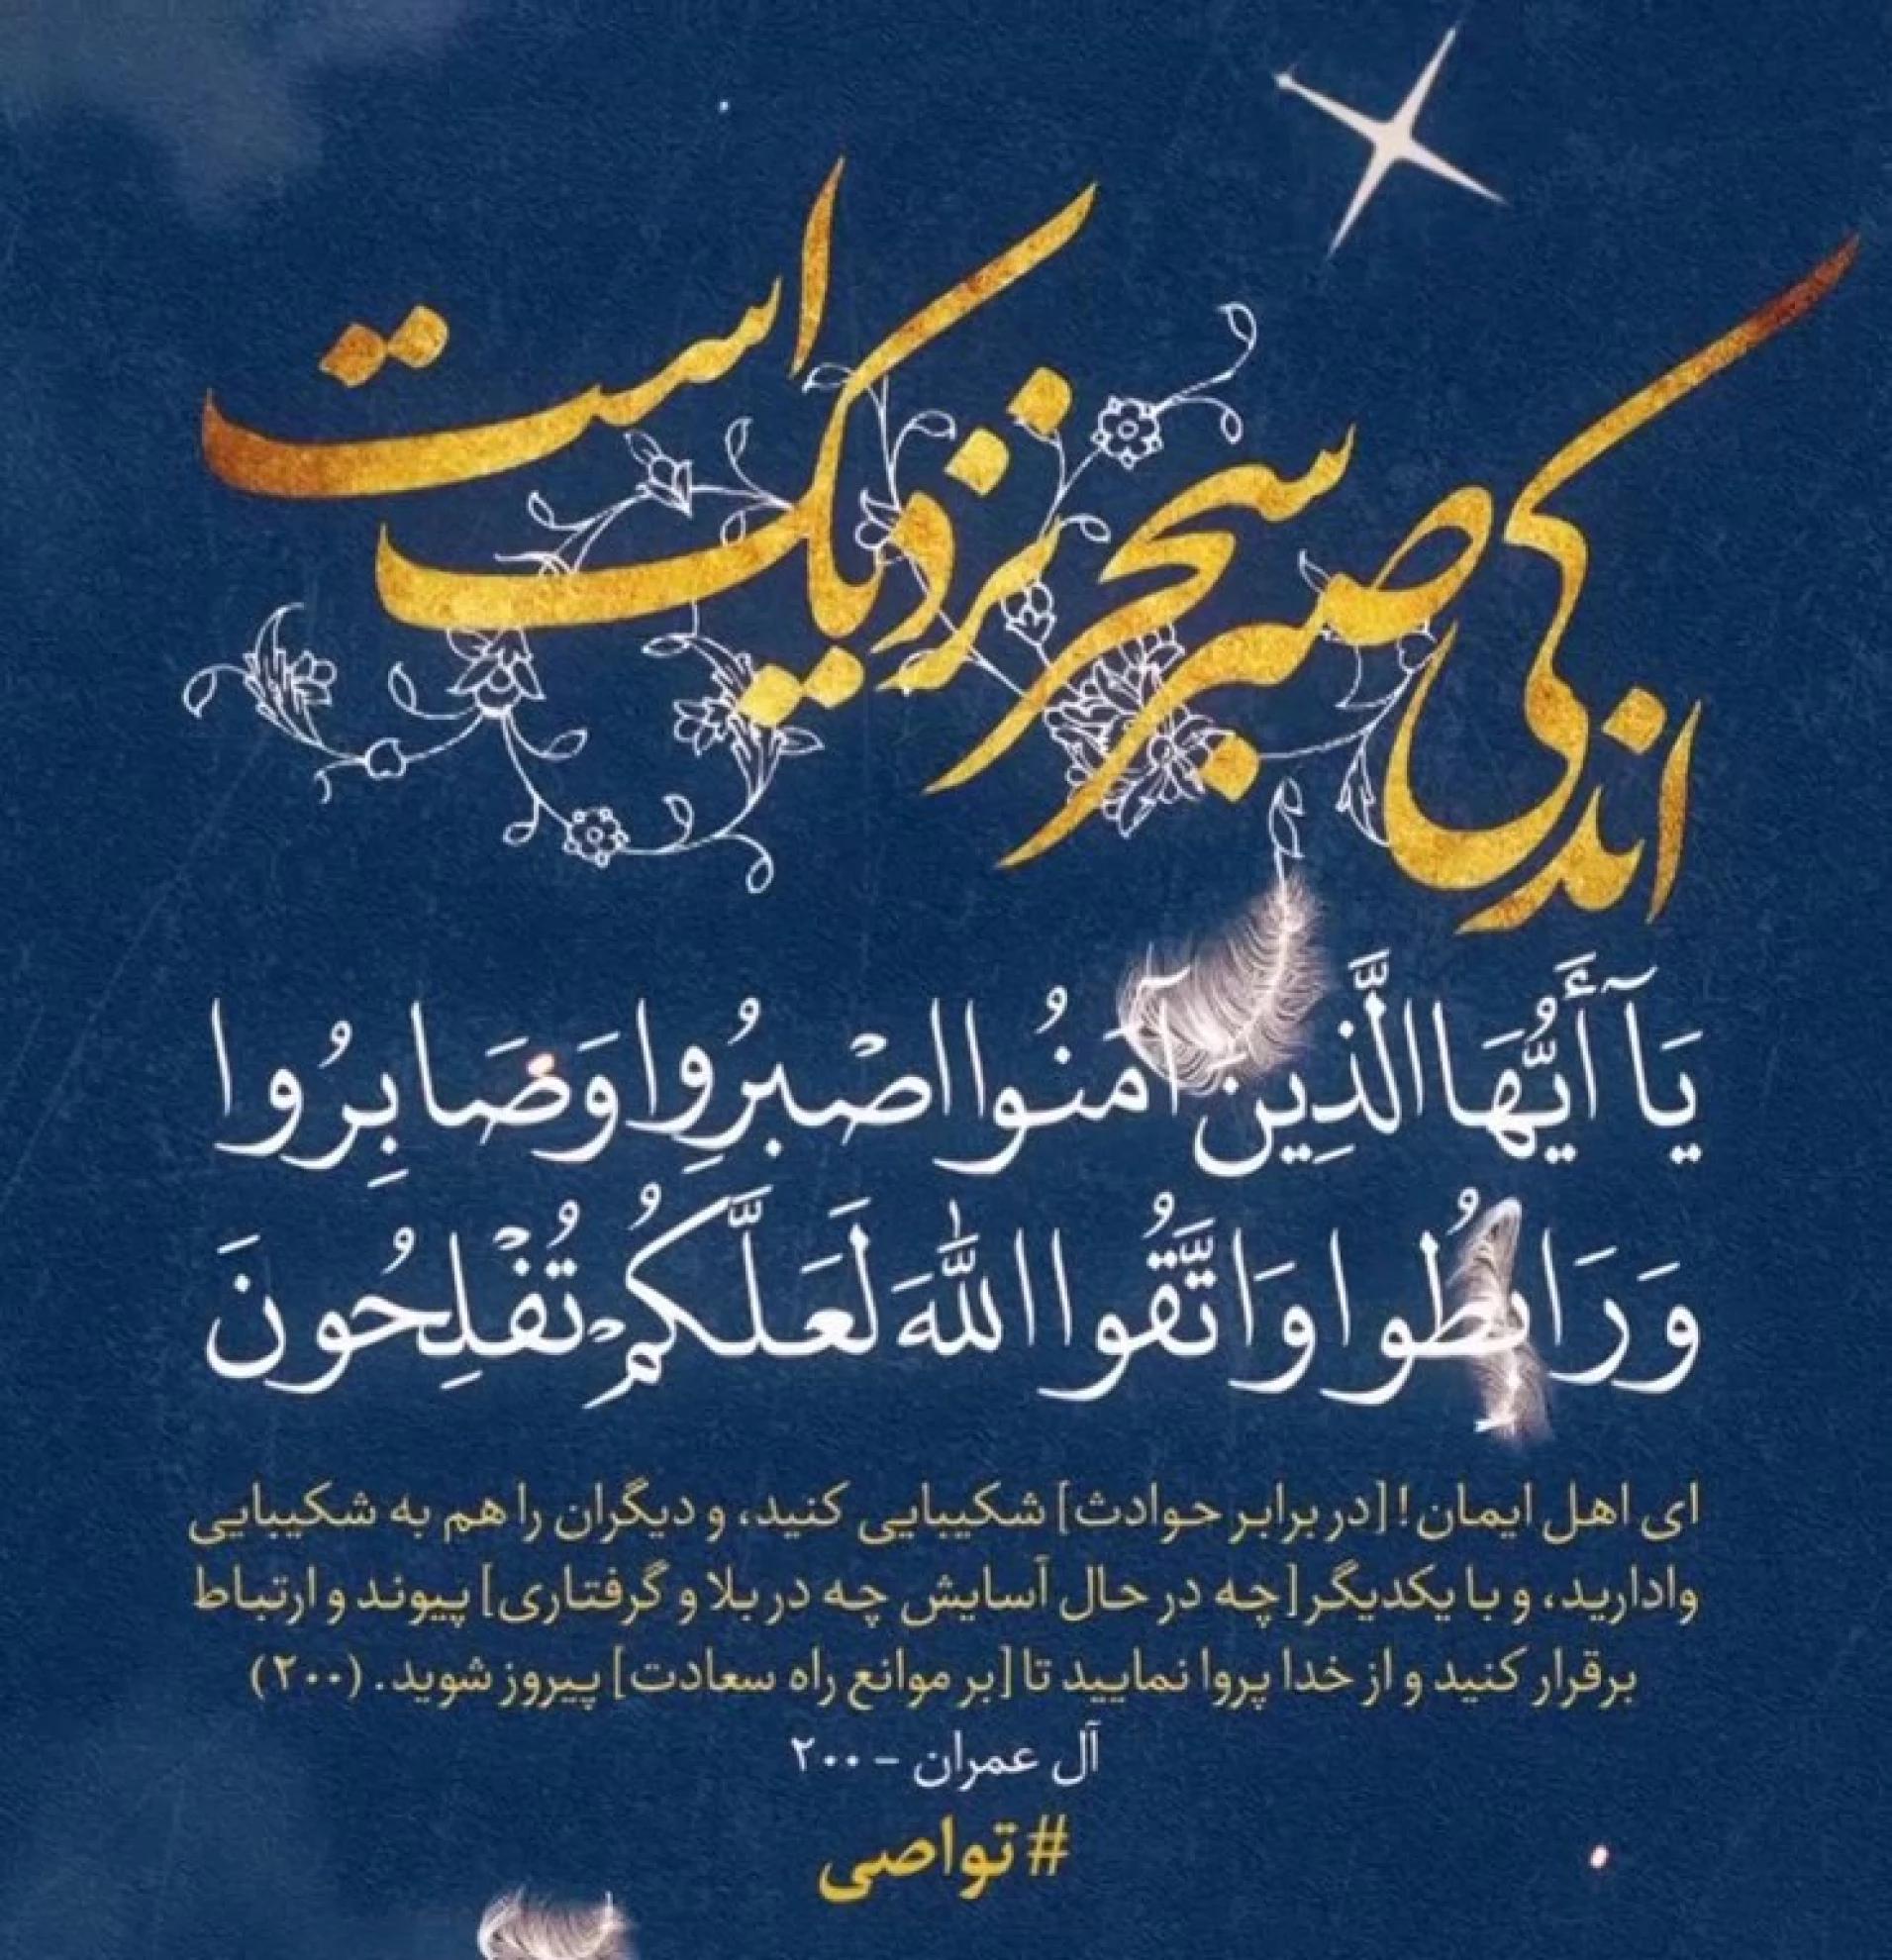 اندکی صبر سحر نزدیک است
يَآ أَيُّهَا الَّذِينَ آمَنُوا اصْبِرُوا وَصَابِرُوا
وَرَابِطُوا وَاتَّقُوا اللَّهَ لَعَلَّكُمْ تُفْلِحُونَ
ای اهل ایمان! [در برابر حوادث] شکیبایی کنید، و دیگران را هم به شکیبایی
وادارید، و با یکدیگر [چه در حال آسایش چه در بلا و گرفتاری] پیوند و ارتباط
برقرار کنید و از خدا پروا نمایید تا [بر موانع راه سعادت] پیروز شوید. (۲۰۰)
آل عمران – ۲۰۰
#تواصی